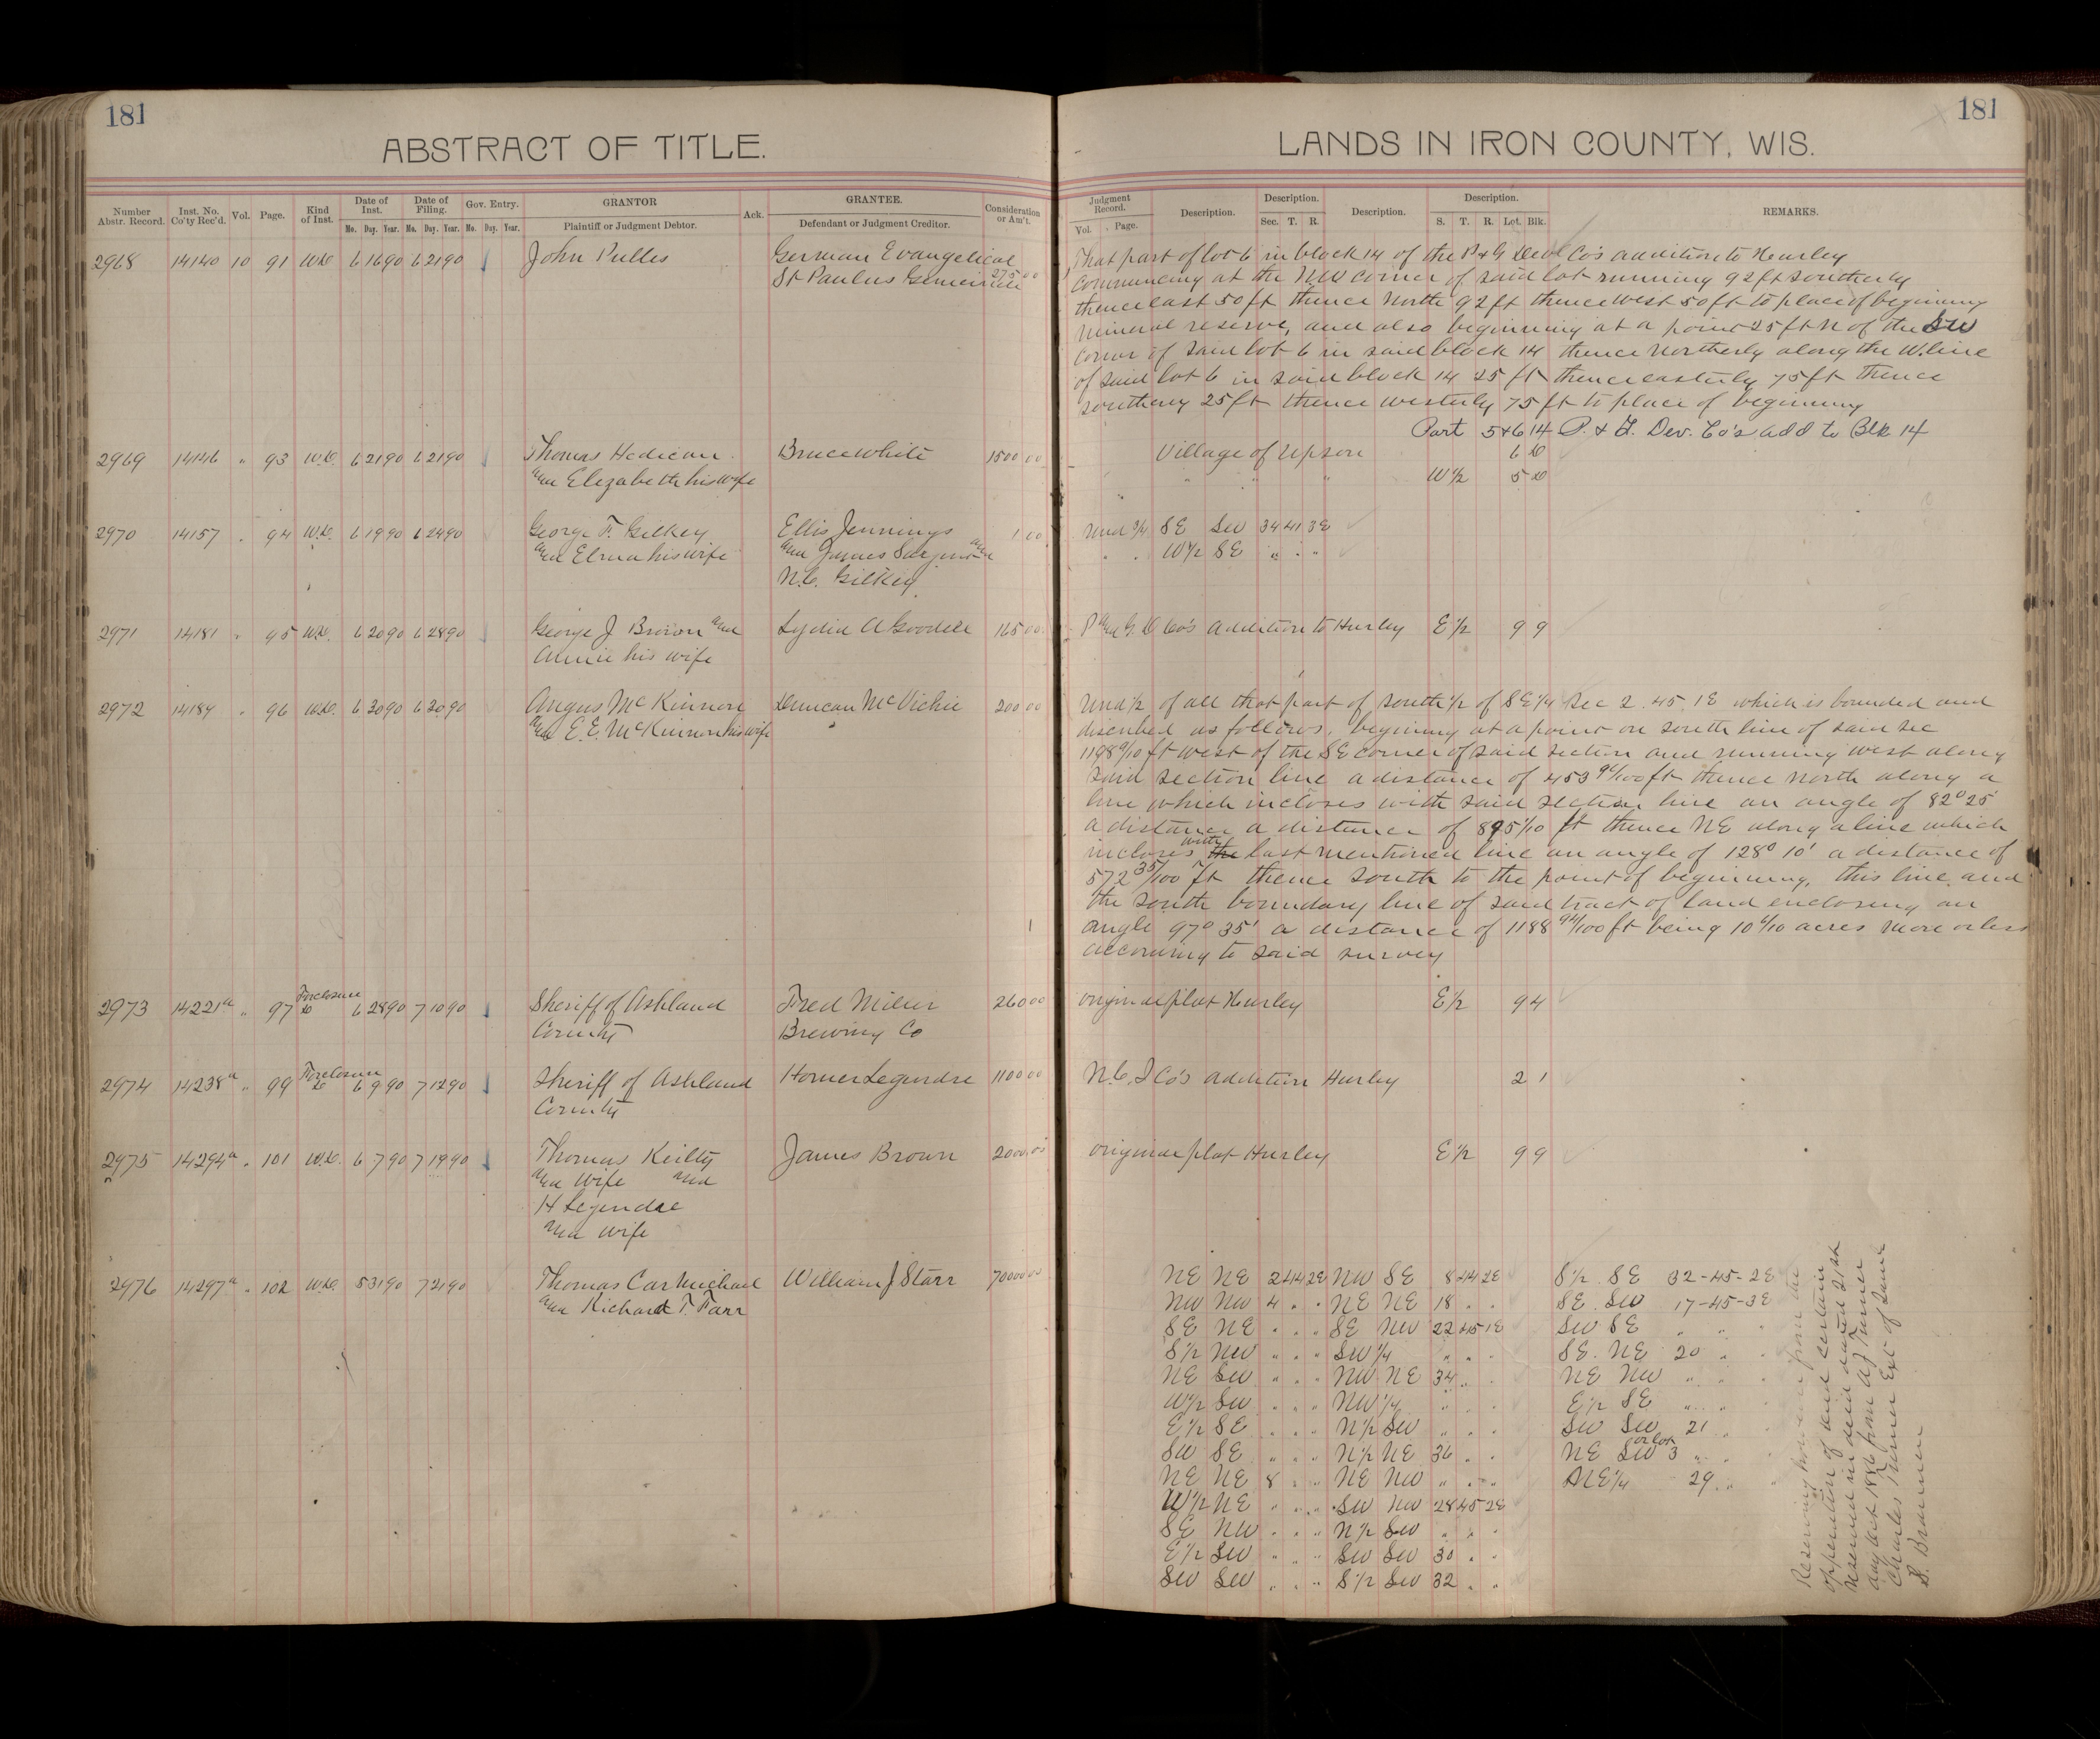 181
ABSTRACT OF TITLE.
Number Abstr. Record. Inst. No. Co'ty Rec'd. Vol. Page. Kind of Inst. Date of Inst. Date of Filing. Gov. Entry. GRANTOR Ack. GRANTEE. Consideration or Am't.
Mo. Day. Year. Mo. Day. Year. Mo. Day. Year. Plaintiff or Judgment Debtor. Defendant or Judgment Creditor.
2968 14140 10 91 W.D. 6 16 90 6 21 90 John Pulles German Evangelical
St Paulus 275 00
2969 14146 " 93 W.D. 6 21 90 6 21 90 Thomas Hedican Bruce White 1500 00
and Elizabeth his wife
2970 14157 " 94 W.D. 6 19 90 6 24 90 George F. Gilkey Ellis Jennings 1 00
and Elma his wife and James Sargent and
N.C. Gilkey
2971 14181 " 95 W.D. 6 20 90 6 28 90 George J Brown and Lydia A Goodell 165 00
Annie his wife
2972 14184 " 96 W.D. 6 30 90 6 30 90 Angus McKinnon Duncan McVichie 200 00
and E.E. McKinnon his wife
2973 14221a " 97 Foreclosure D 6 28 90 7 10 90 Sheriff of Ashland Fred Miller 260 00
County Brewing Co
2974 14238a " 99 Foreclosure D 6 9 90 7 12 90 Sheriff of Ashland Homer Legendre 1100 00
County
2975 14294a " 101 W.D. 6 7 90 7 19 90 Thomas Keilty James Brown 2000.00
and Wife and
H Legendre
and wife
2976 14297a " 102 W.D. 5 31 90 7 21 90 Thomas Carmichael William J Starr 70000 00
and Richard T. Farr
181
LANDS IN IRON COUNTY, WIS.
Judgment Record. Description. Description. Description. Description. REMARKS.
Vol. Page. Sec. T. R. S. T. R. Lot. Blk.
That part of lot 6 in block 14 of the P & G Devl Co's addition to Hurley
commencing at the NW corner of said lot running 92 ft southerly
thence east 50 ft thence North 92 ft thence West 50 ft to place of begining
mineral reserve, and also beginning at a point 25 ft N of the SW
corner of said lot 6 in said block 14 thence Northerly along the W. line
of said lot 6 in said block 14 25 ft thence easterly 75 ft thence
southerly 25 ft thence westerly 75 ft to place of beginning
Part 5 & 6 14 P. & G. Dev. Co's add to Blk 14
Village of Upson 6 10
" " " W 1/2 5 10
Und 3/4 SE SW 34 41 3E
" " W 1/2 SE " " "
P and G. D Co's addition to Hurley E 1/2 9 9
Und 1/2 of all that part of south 1/2 of SE 1/4 Sec 2. 45. 1E which is bounded and
discribed as follows, begining at a point on south line of said sec
1198 9/10 ft west of the SE corner of said section and running west along
said section line a distance of 453 94/100 ft thence north along a
line which incloses with said section line an angle of 82° 25'
a distance a distance of 895 1/10 ft thence NE along a line which
incloses with the last mentioned line an angle of 128° 10' a distance of
572 35/100 ft thence south to the point of beginning, this line and
the south boundary line of said tract of land enclosing an
angle 97° 35' a distance of 1188 94/100 ft being 10 6/10 acres more or less
according to said survey
original plat Hurley E 1/2 9 4
N.C.I Co's addition Hurley 2 1
original plat Hurley E 1/2 9 9
NE NE 2 44 2E NW SE 8 44 2E S 1/2 SE 32-45-2E
NW NW 4 " " NE NE 18 " " SE SW 17-45-3E
SE NE " " " SE NW 22 45 1E SW SE " " "
S 1/2 NW " " " SW 1/4 " " " SE. NE 20 " "
NE SW " " " NW NE 34 " " NE NW " " "
W 1/2 SW " " " NW 1/4 " " " E 1/2 SE " " "
E 1/2 SE " " " N 1/2 SW " " " SW SW 21 " "
SW SE " " " N 1/2 NE 36 " " NE SW or lot 3 " " "
NE NE 8 " " NE NW " " " NE 1/4 29 " "
W 1/2 NE " " " SW NW 28 45 2E
SE NW " " " N 1/2 SW " " "
E 1/2 SW " " " SW SW 30 " "
SW SW " " " S 1/2 SW 32 " "
Reserving however from the
opperation of deed certain
reserved in deed dated 21st
day Oct 1886 from A J Turner
Charles Turner Ext of Jane
S. Brannen